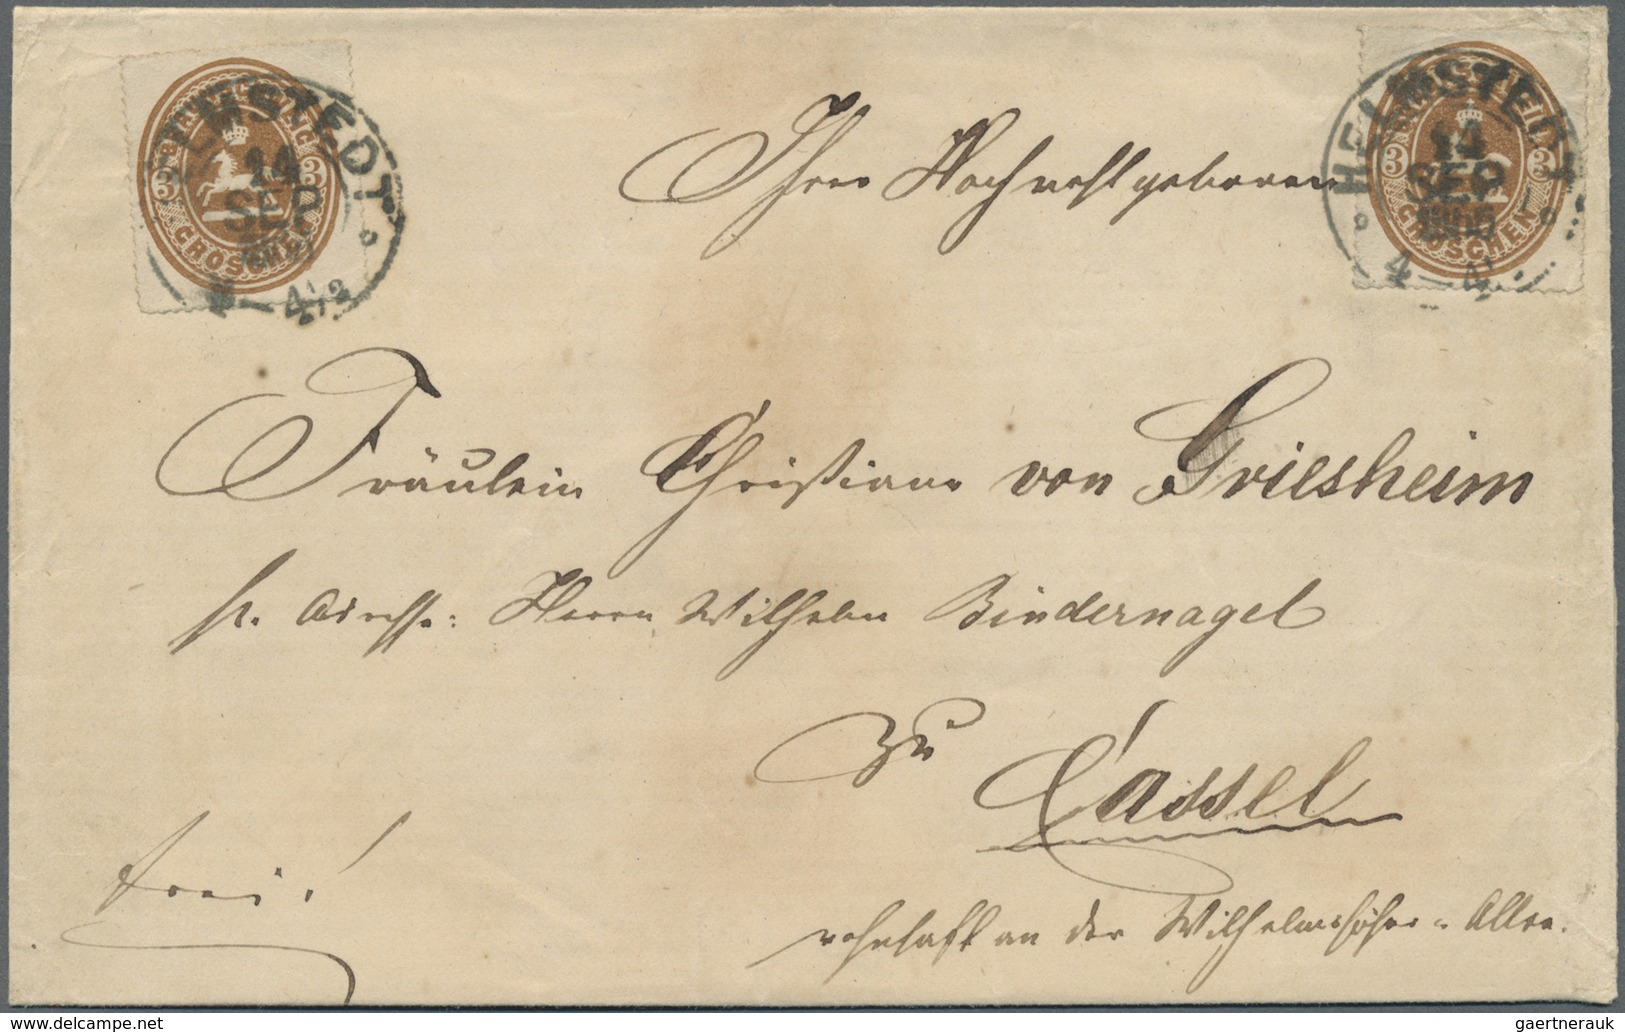 BRAUNSCHWEIG
3 3
GROSCHEN
HELMSTEDT
14
SEP
4-4½
HELMSTEDT
14
SEP
1866
4-4½
3 3
GROSCHEN
Ihrer Hochwohlgeboren
Fräulein Christiane von Griesheim
pr. Adresse: Herrn Wilhelm Bindernagel
zu
Cassel
frei!
wohnhaft an der Wilhelmshöher-Allee.
gaertnerauk